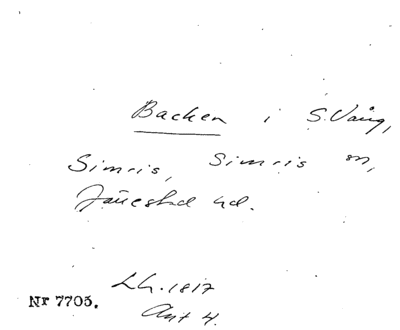 Backen i S. Vång,
Simris, Simris sn,
Järrestad hd.
Lh. 1817
Akt 4.
Nr 7705.